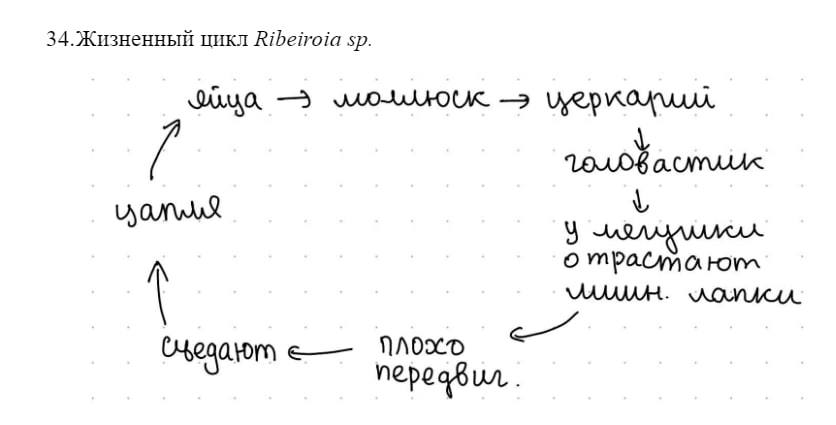 34.Жизненный цикл Ribeiroia sp.
яйца → моллюск → церкарий
↓
головастик
↓
у лягушки
отрастают
лишн. лапки
плохо
передвиг.
съедают
цапля